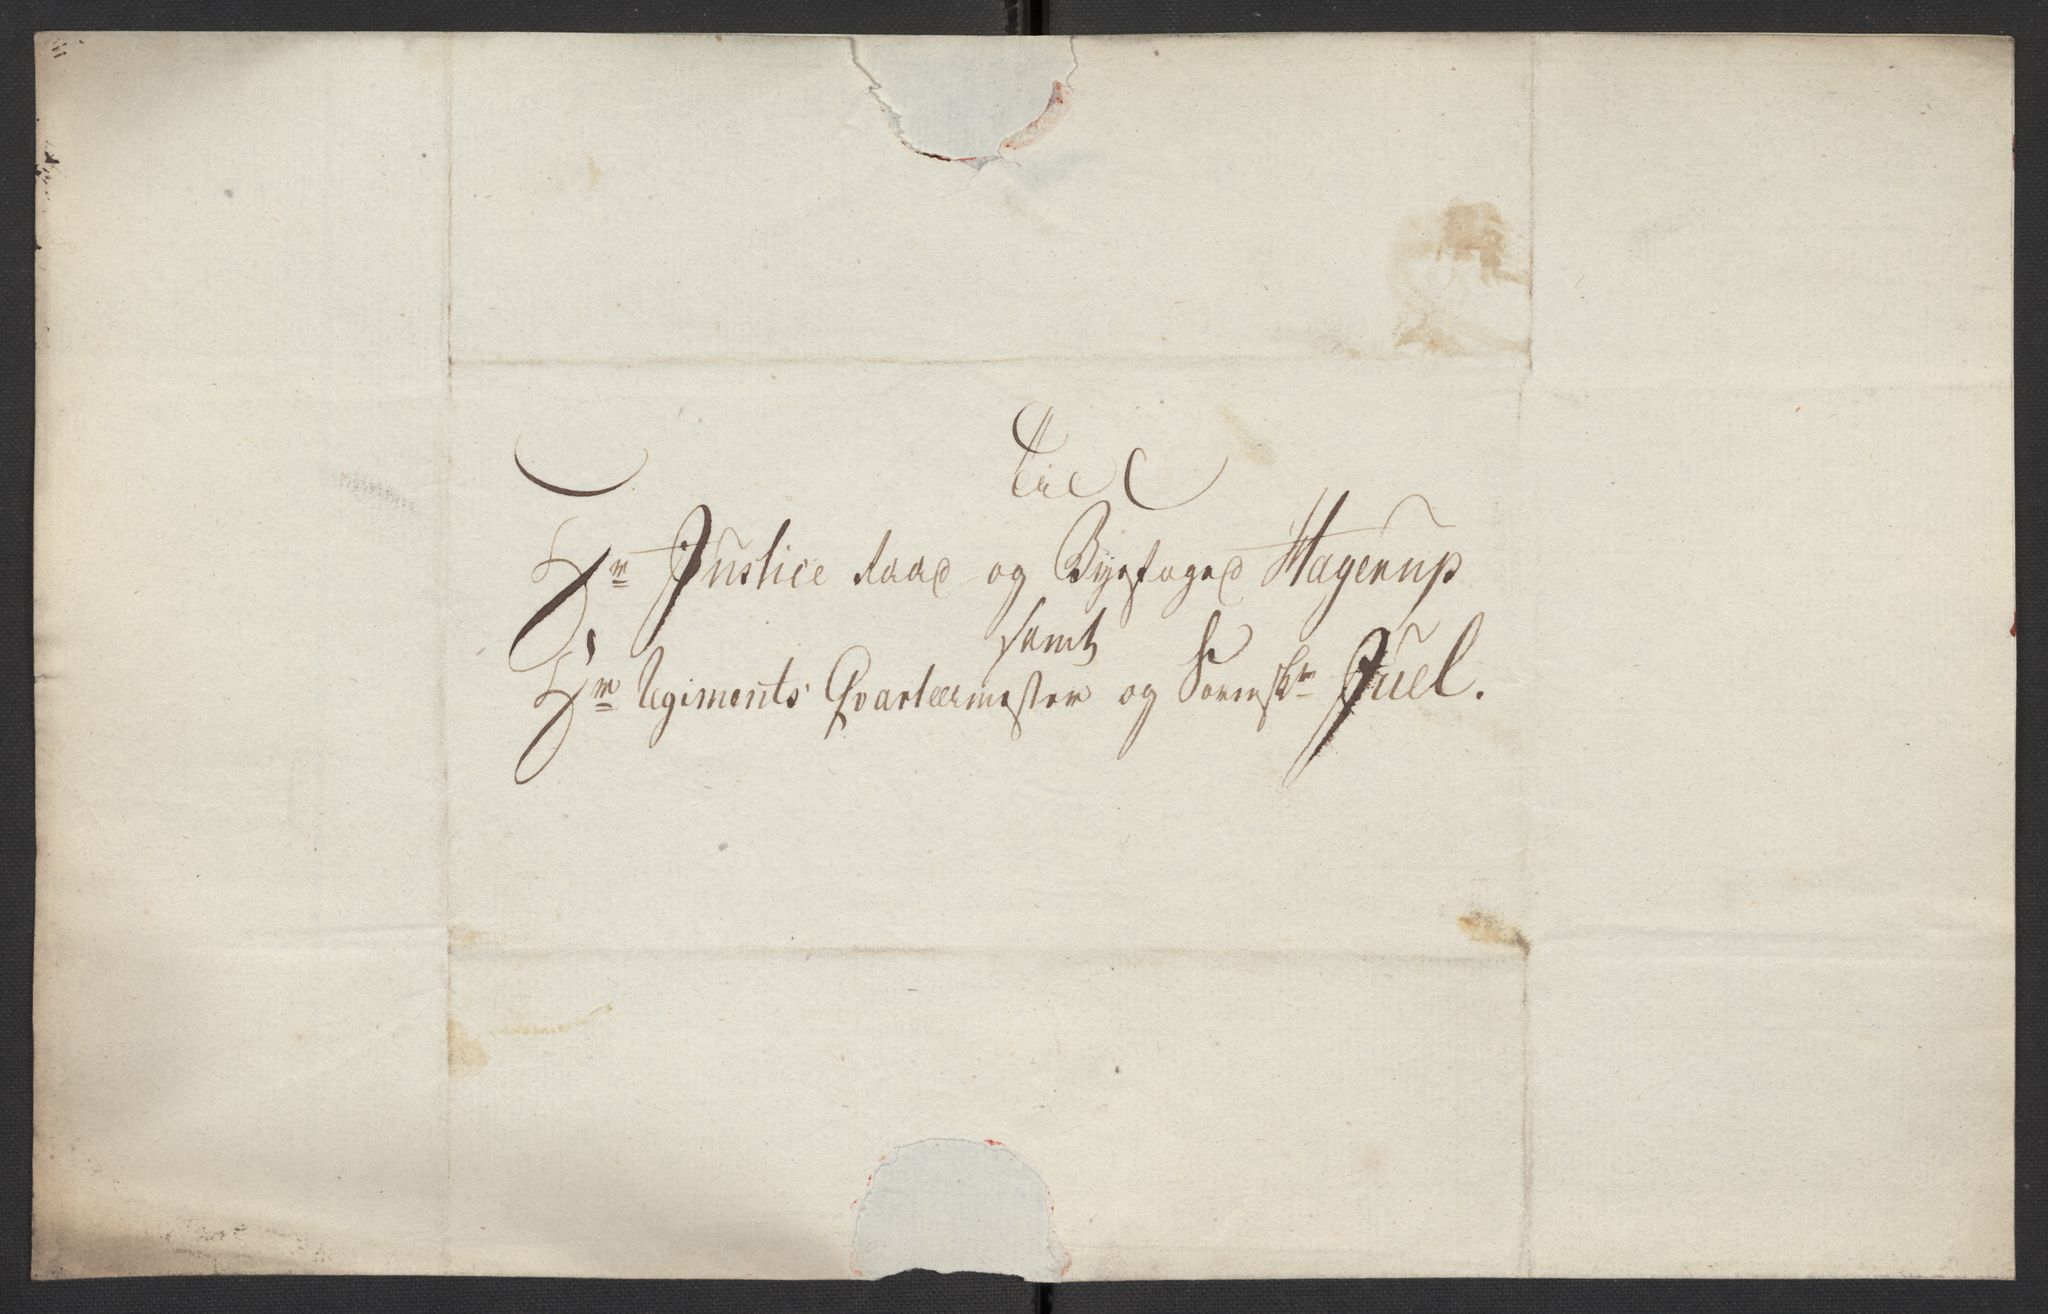 Til
Hr Justice Raad og Byefoged Hagerup
samt
Hr Regiments Qvarteermester og Sorenskr Juel.